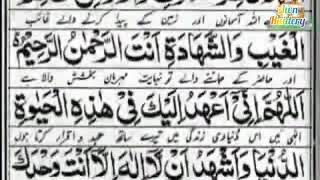 اللہ آسمانوں اور زمین کے پیدا کرنے والے غائب
الْغَيْبِ وَالشَّهَادَةِ اَنْتَ الرَّحْمٰنُ الرَّحِيْمُ
اور حاضر کے جاننے والے تو نہایت مہربان بخشش والا ہے
اَللّٰهُمَّ اِنِّيْ اَعْهَدُ اِلَيْكَ فِيْ هٰذِهِ الْحَيٰوةِ
الٰہی میں اس دُنیاوی زندگی میں تیرے ساتھ عہد و اقرار کرتا ہوں
الدُّنْيَا وَاَشْهَدُ اَنْ لَّا اِلٰهَ اِلَّا اَنْتَ وَحْدَكَ